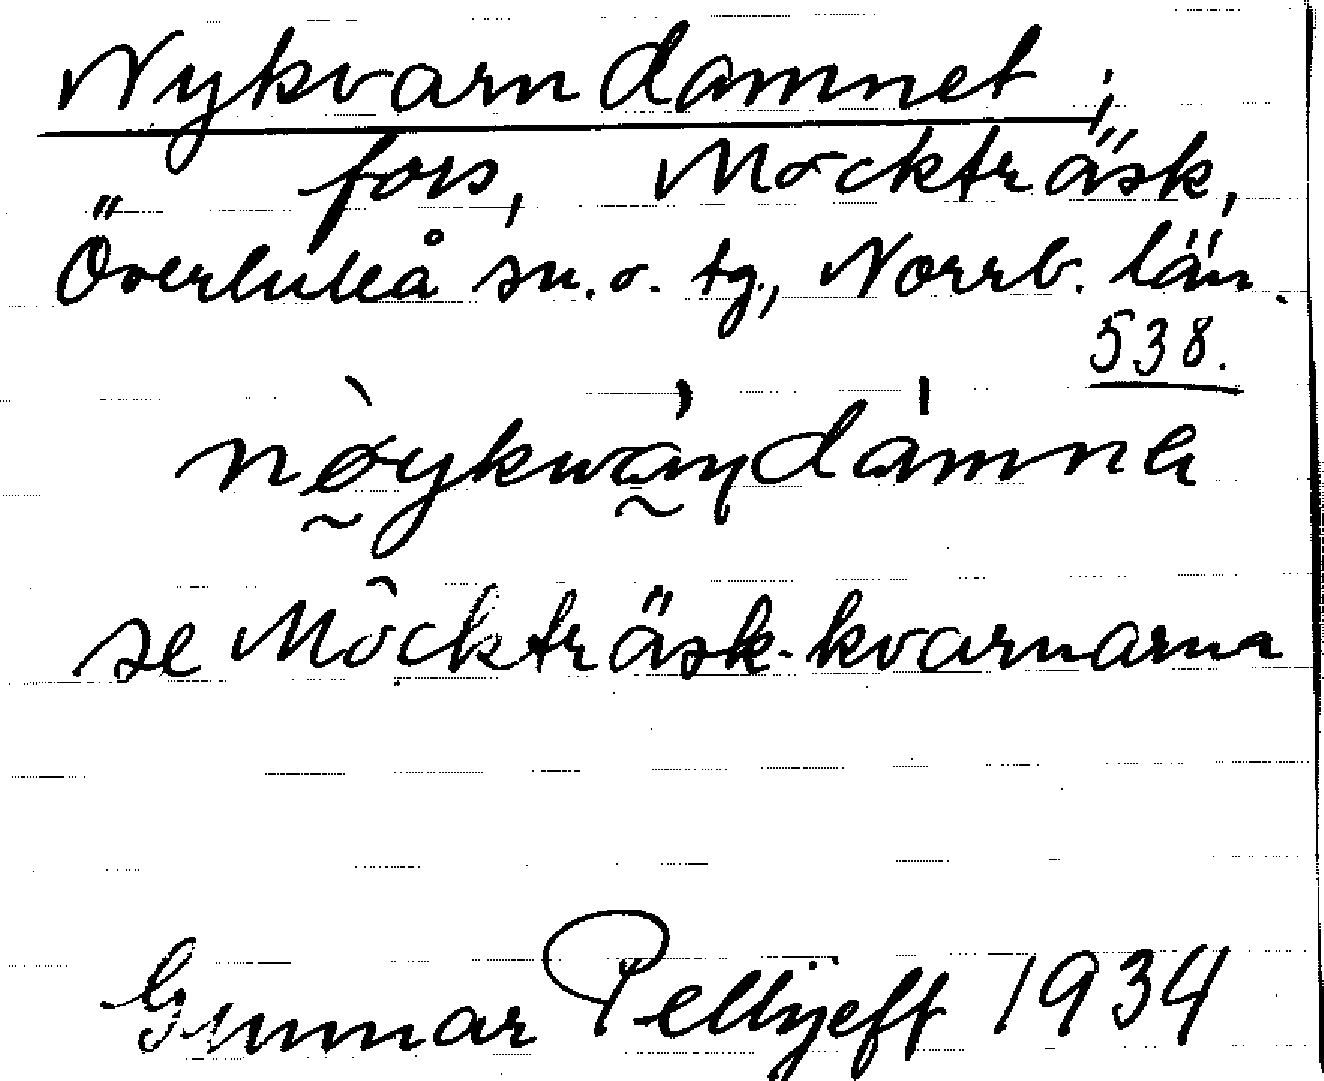 Nykvarndamnet;
fors, Möckträsk,
Överluleå sn. o. tg., Norrb. län.
538.
nø̀ykwaṇdámna
se Möckträsk-kvarnarna
Gunnar Pellijeff 1934